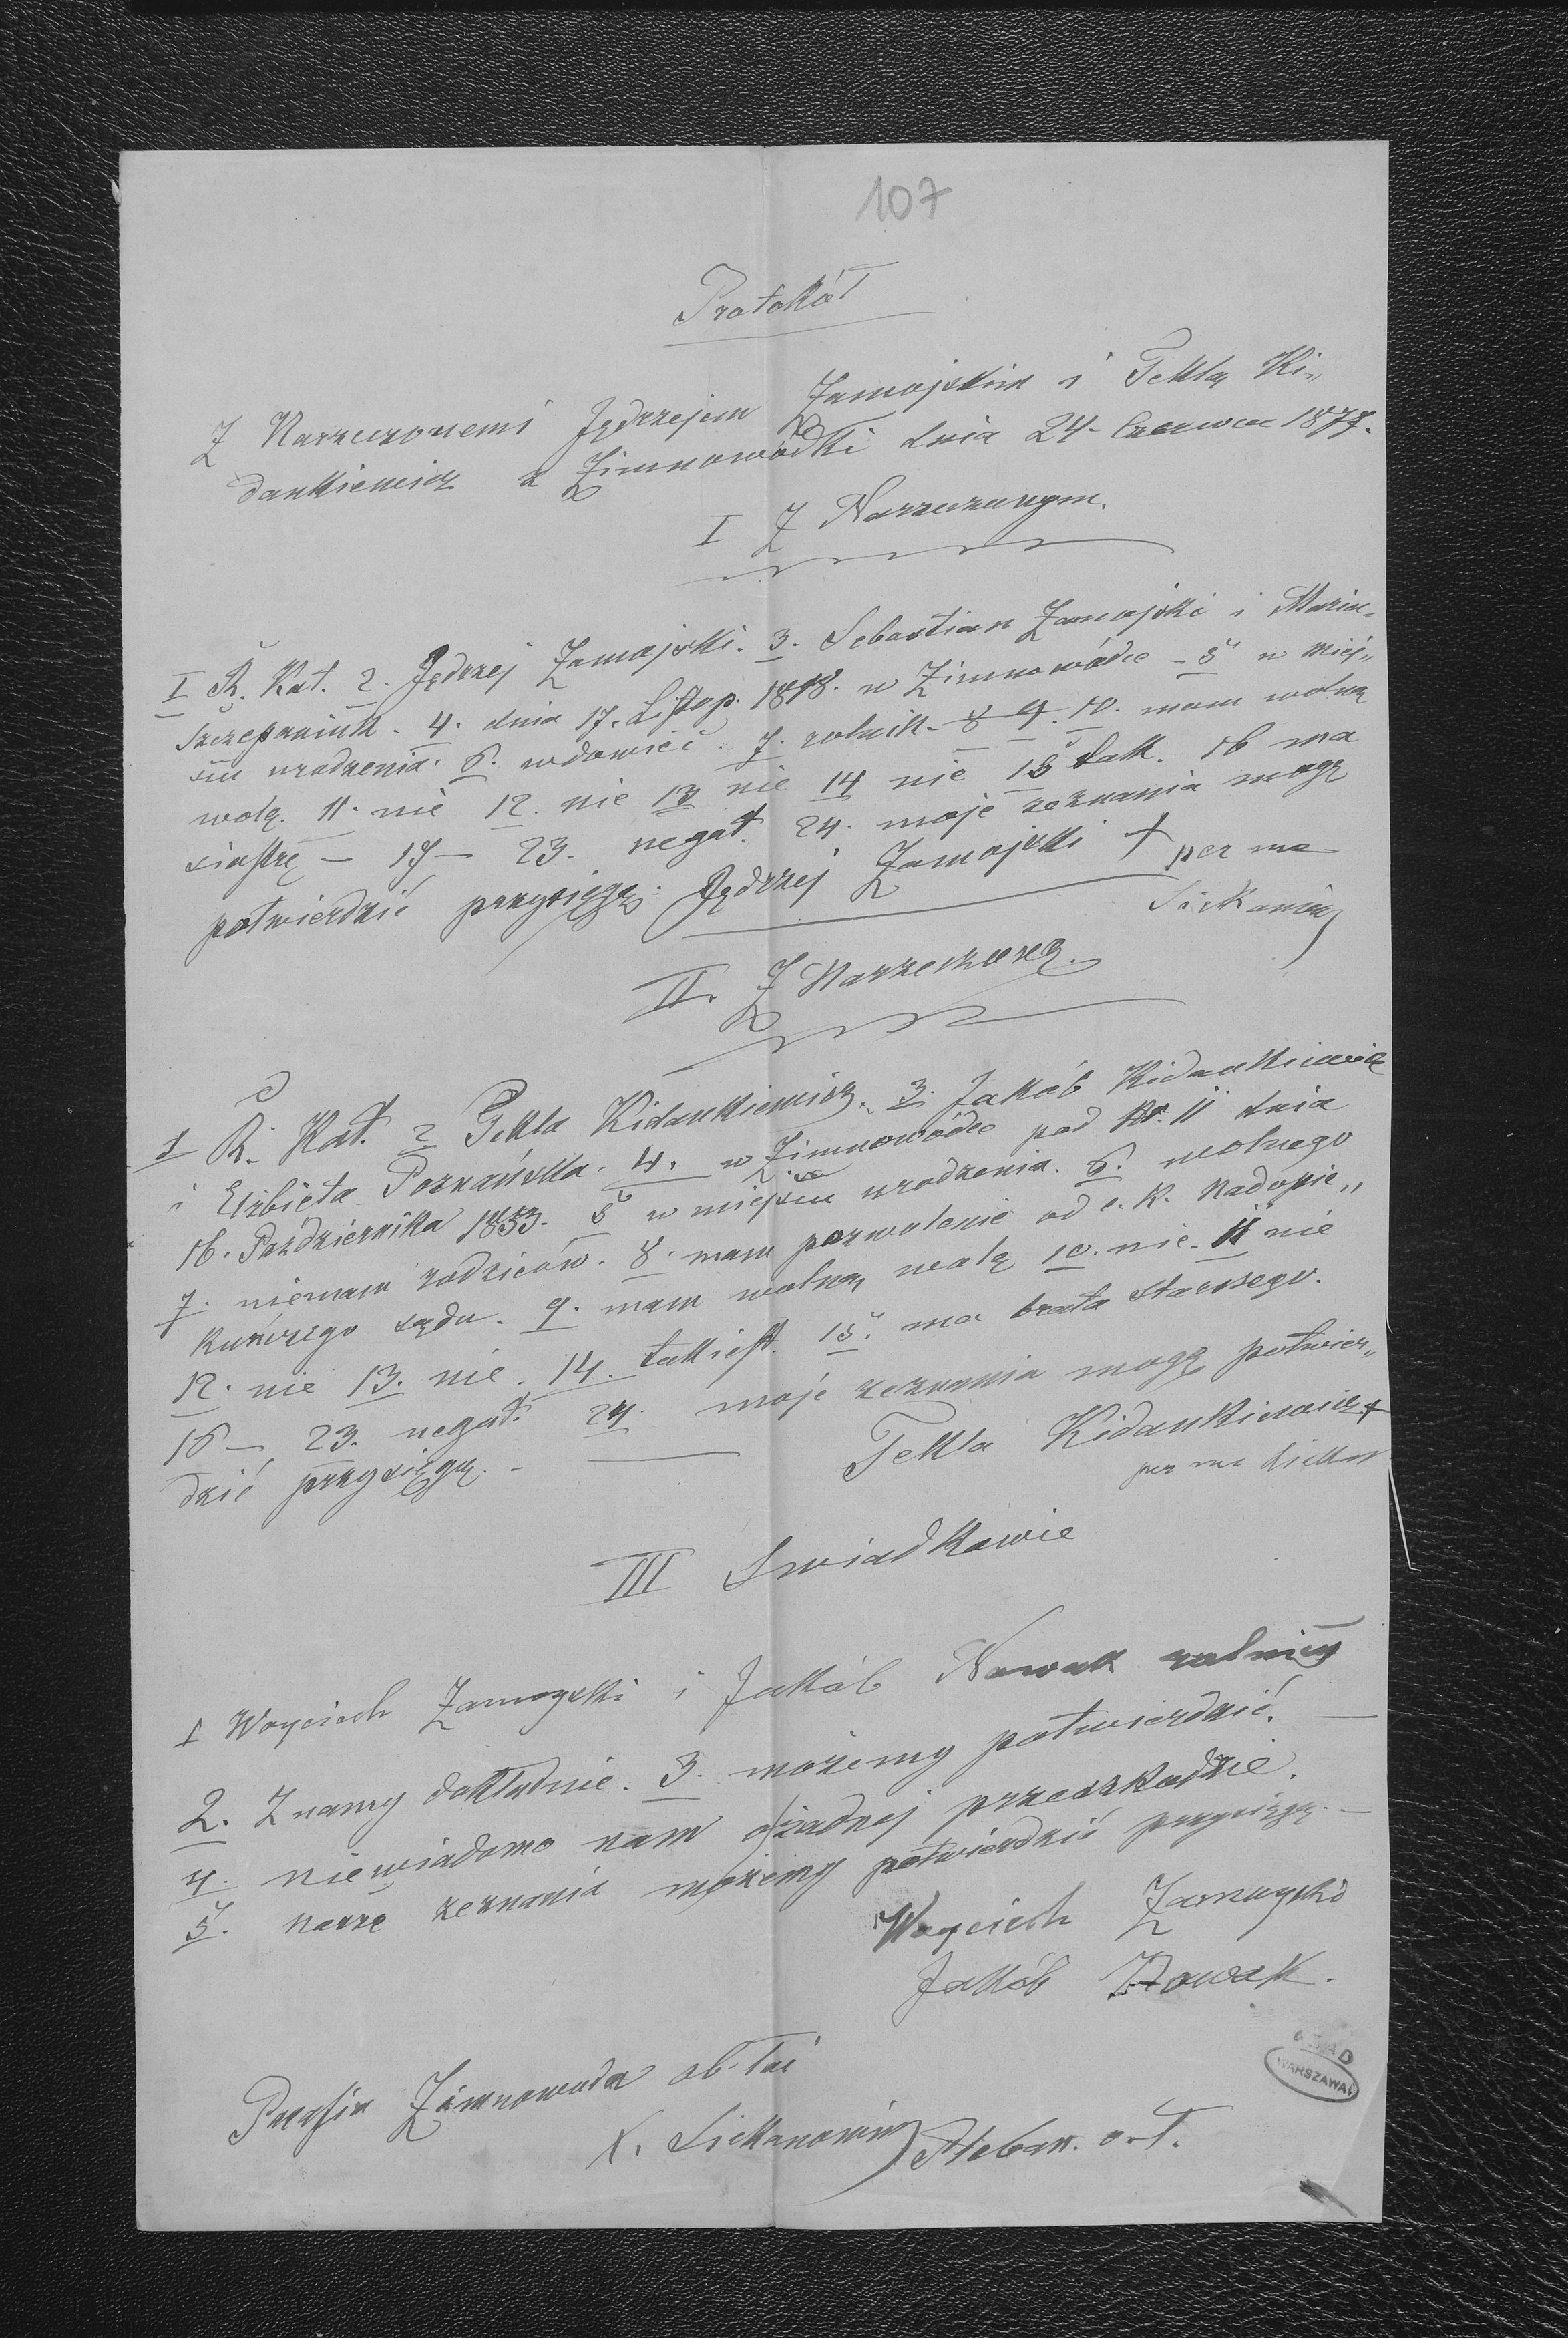 107
Protokół
Z Narzeczonemi Jędrzejem Zamojskim i Teklą Ki„
dankiewicz z Zimnowódki dnia 24. Czerwca 1877.
I Z Narzeczonym.
I R. Kat. 2. Jędrzej Zamojski. 3. Sebastian Zamojski i Maria„
Szczepaniuk. 4. dnia 17. Listop. 1848. w Zimnowódce - 5 w miej„
scu urodzenia. 6. wdowiec. 7. rolnik - 8 9. 10. mam wolną
wolę. 11. nie 12. nie 13 nie 14 nie 15 tak. 16 ma
siostrę — 17 — 23. negat. 24. moje zeznania mogę
potwierdzić przysięgą. Jędrzej Zamojski + per me
Siekanowicz
II. Z Narzeczoną.
1 R. Kat. 2 Tekla Kidankiewicz. 3. Jakób Kidankiewicz
i Elżbieta Poznańska. 4. w Zimnowódce pod Nr. 11 dnia
16. Października 1853. 5 w miejscu urodzenia. 6. wolnego
7. niemam rodziców. 8. mam pozwolenie od c. k. nadopie„
kuńczego sądu. 9. mam wolną wolę 10. nie. 11 nie
12. nie 13. nie. 14. tak jest. 15. ma brata starszego.
16 — 23. negat. 24. moje zeznania mogę potwier„
dzić przysięgą. - — Tekla Kidankiewicz +
per me Siekan
III Swiadkowie
1 Woyciech Zamoyski i Jakób Nowak rolnicy
2. Znamy dokładnie. 3. możemy potwierdzić. —
4. niewiadomo nam o żadnej przeszkodzie.
5. nasze zeznania możemy potwierdzić przysięgą. —
Woyciech Zamoyski
Jakób Nowak.
Parafia Zimnowoda ob. łać
X. Siekanowicz Pleban. o. ł.
AGAD
WARSZAWA